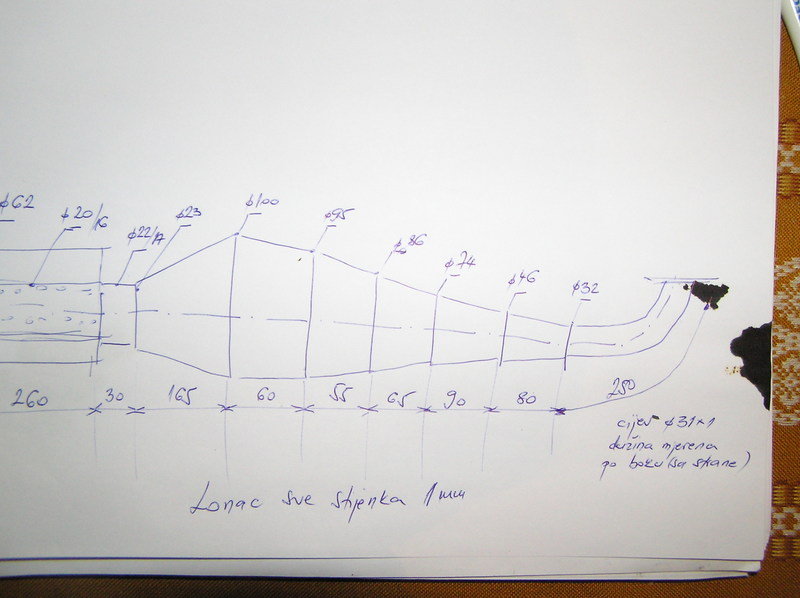 ϕ62
ϕ20/16
ϕ22/17
ϕ23
ϕ100
ϕ95
ϕ86
ϕ74
ϕ46
ϕ32
260
30
165
60
55
65
90
80
250
cijev ϕ31×1
dužina mjerena
po boku (sa strane)
Lonac sve stjenka 1mm